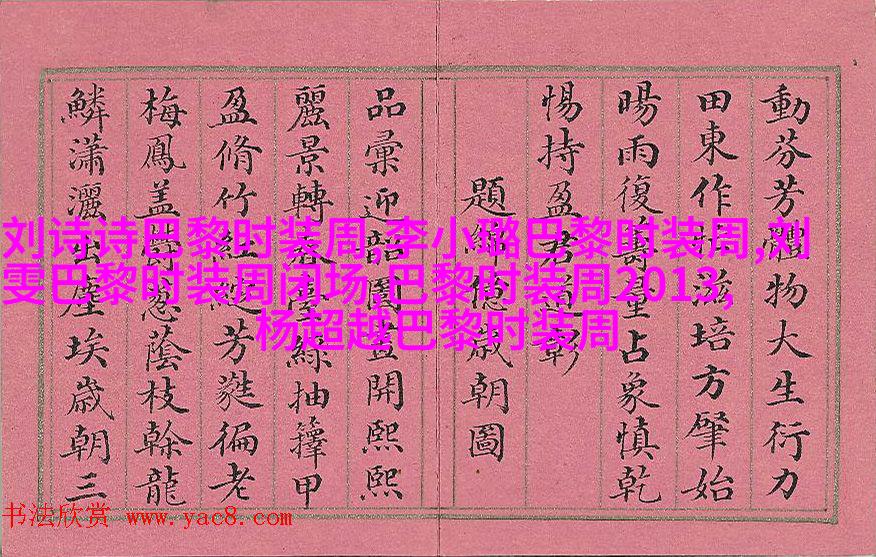 動芬芳體物大生衍力
田東作扶滋培方肇始
暘雨復壽量占象慎乾
惕持盈君道彰
題綿億歲朝圖
品彙迎韶圖畫開熙熙
麗景轉春臺綠抽籜甲
盈脩竹紅綻芳蕤徧老
梅鳳蓋蔥蔭枝榦龍
鱗瀟灑出塵埃歲朝三
刘诗诗巴黎时装周,李小璐巴黎时装周,刘
雯巴黎时装周闭场,巴黎时装周2013,
杨超越巴黎时装周
书法欣赏 www.yac8.com